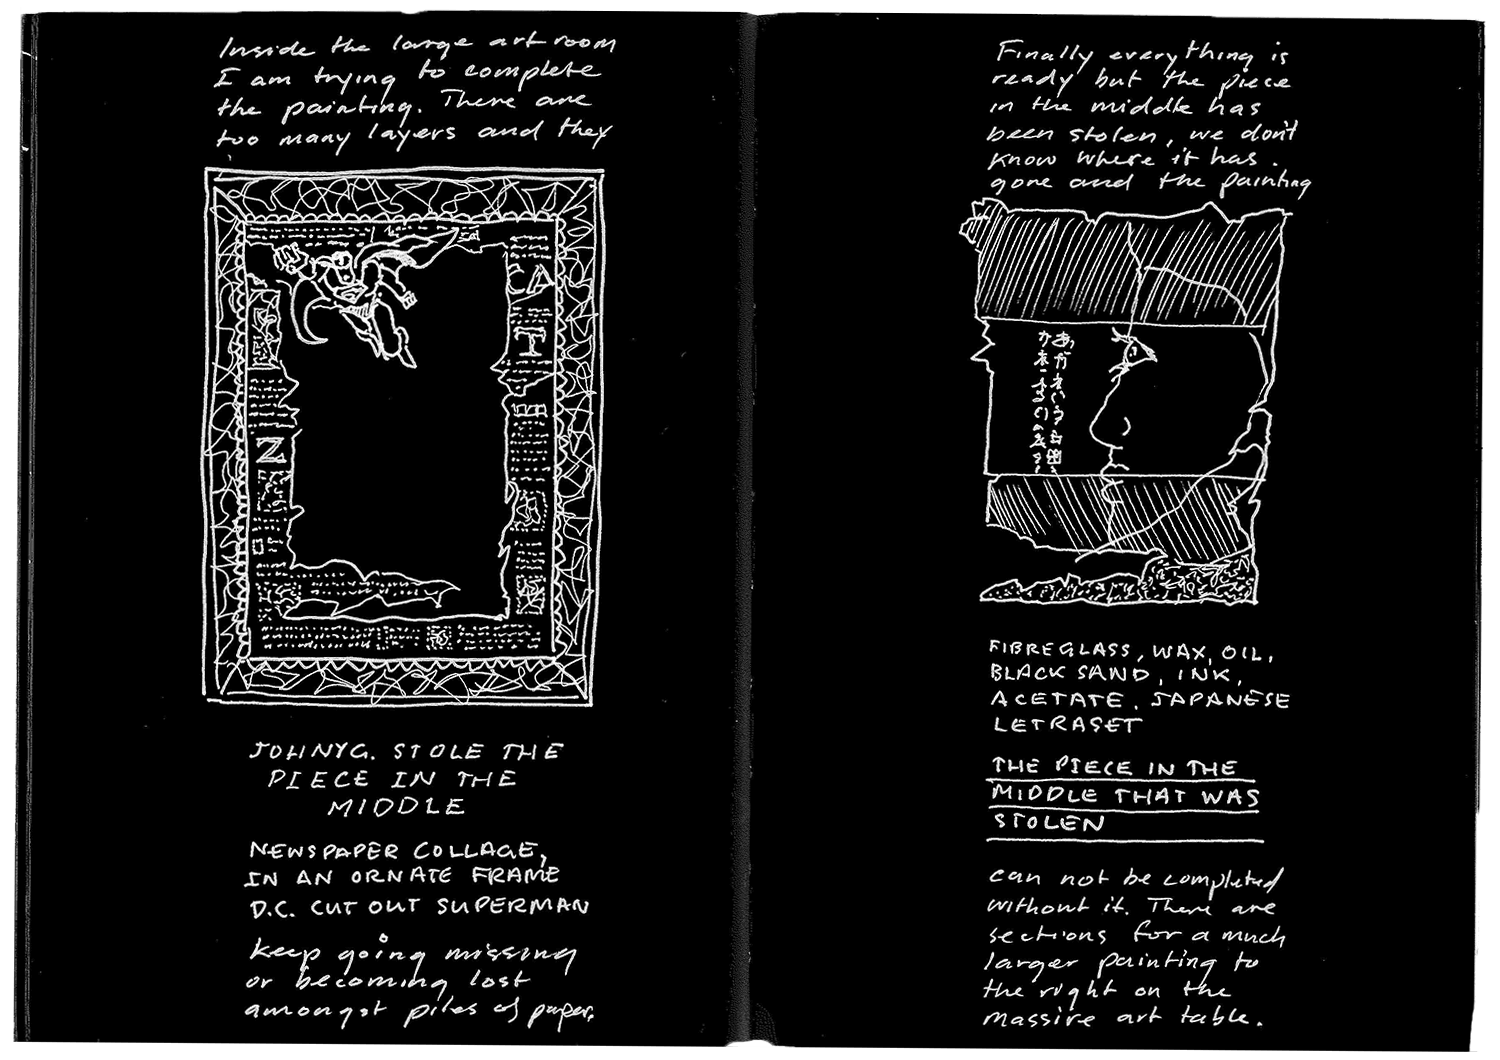 Inside the large art room
I am trying to complete
the painting. There are
too many layers and they
CA
T
Z
JOHNYG. STOLE THE
PIECE IN THE
MIDDLE
NEWSPAPER COLLAGE,
IN AN ORNATE FRAME
D.C. CUT OUT SUPERMAN
keep going missing
or becoming lost
amongst piles of paper.
Finally everything is
ready but the piece
in the middle has
been stolen, we don't
know where it has.
gone and the painting
FIBREGLASS, WAX, OIL,
BLACK SAND, INK,
ACETATE, JAPANESE
LETRASET
THE PIECE IN THE
MIDDLE THAT WAS
STOLEN
can not be completed
without it. There are
sections for a much
larger painting to
the right on the
massive art table.